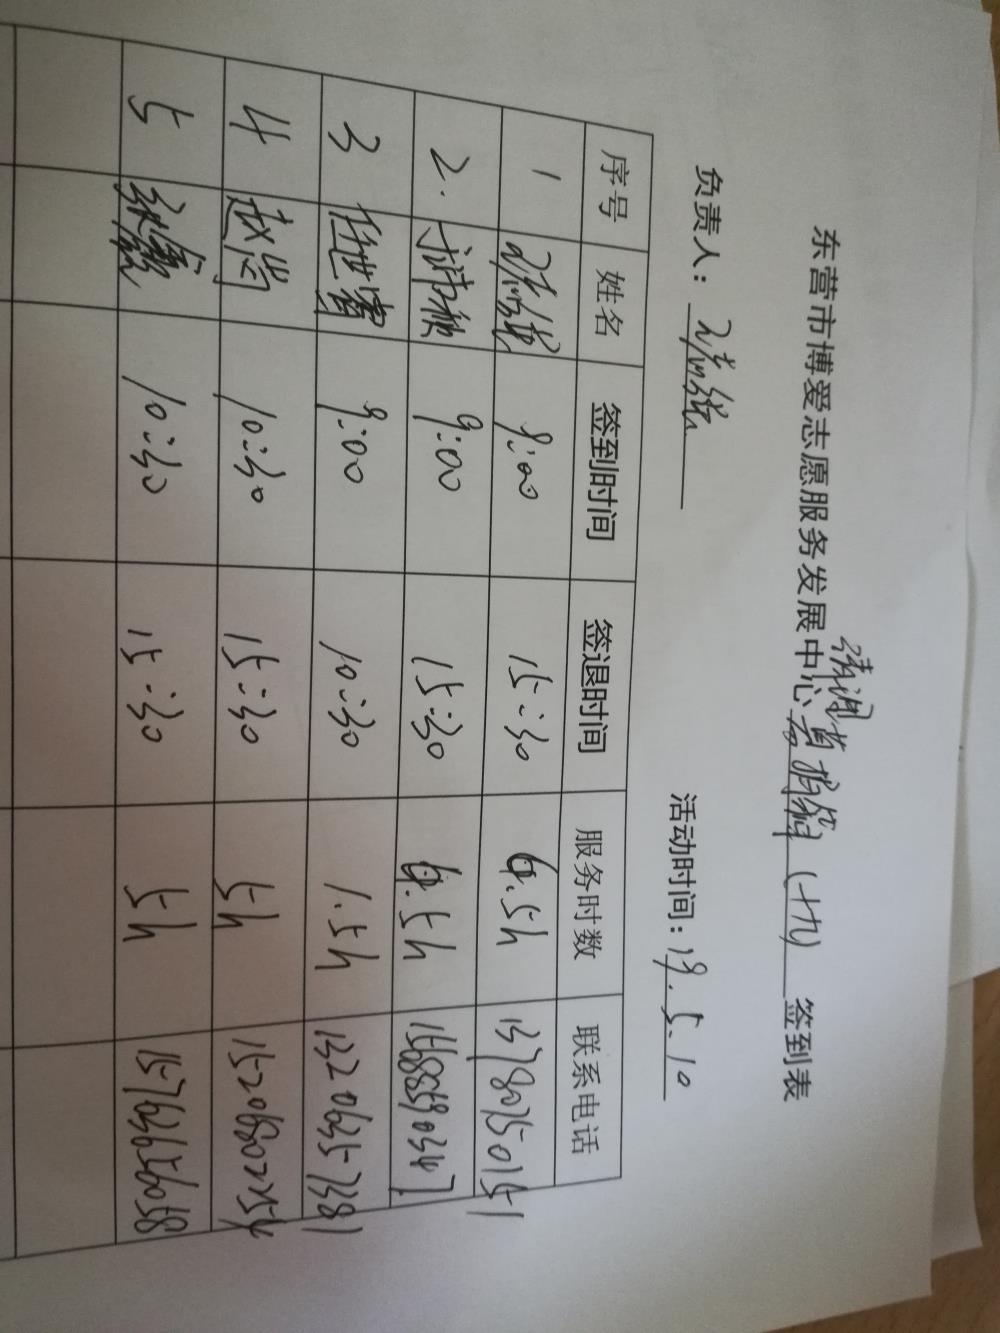 东营市博爱志愿服务发展中心 (十九) 签到表
负责人： 活动时间：19.5.10
序号 姓名 签到时间 签退时间 服务时数 联系电话
1 9:00 15:30 6.5h 13780750151
2. 9:00 15:30 6.5h 15688590347
3 9:00 10:30 1.5h 13206357381
4 赵岩 10:30 15:30 5h
5 10:30 15:30 5h 15763626058